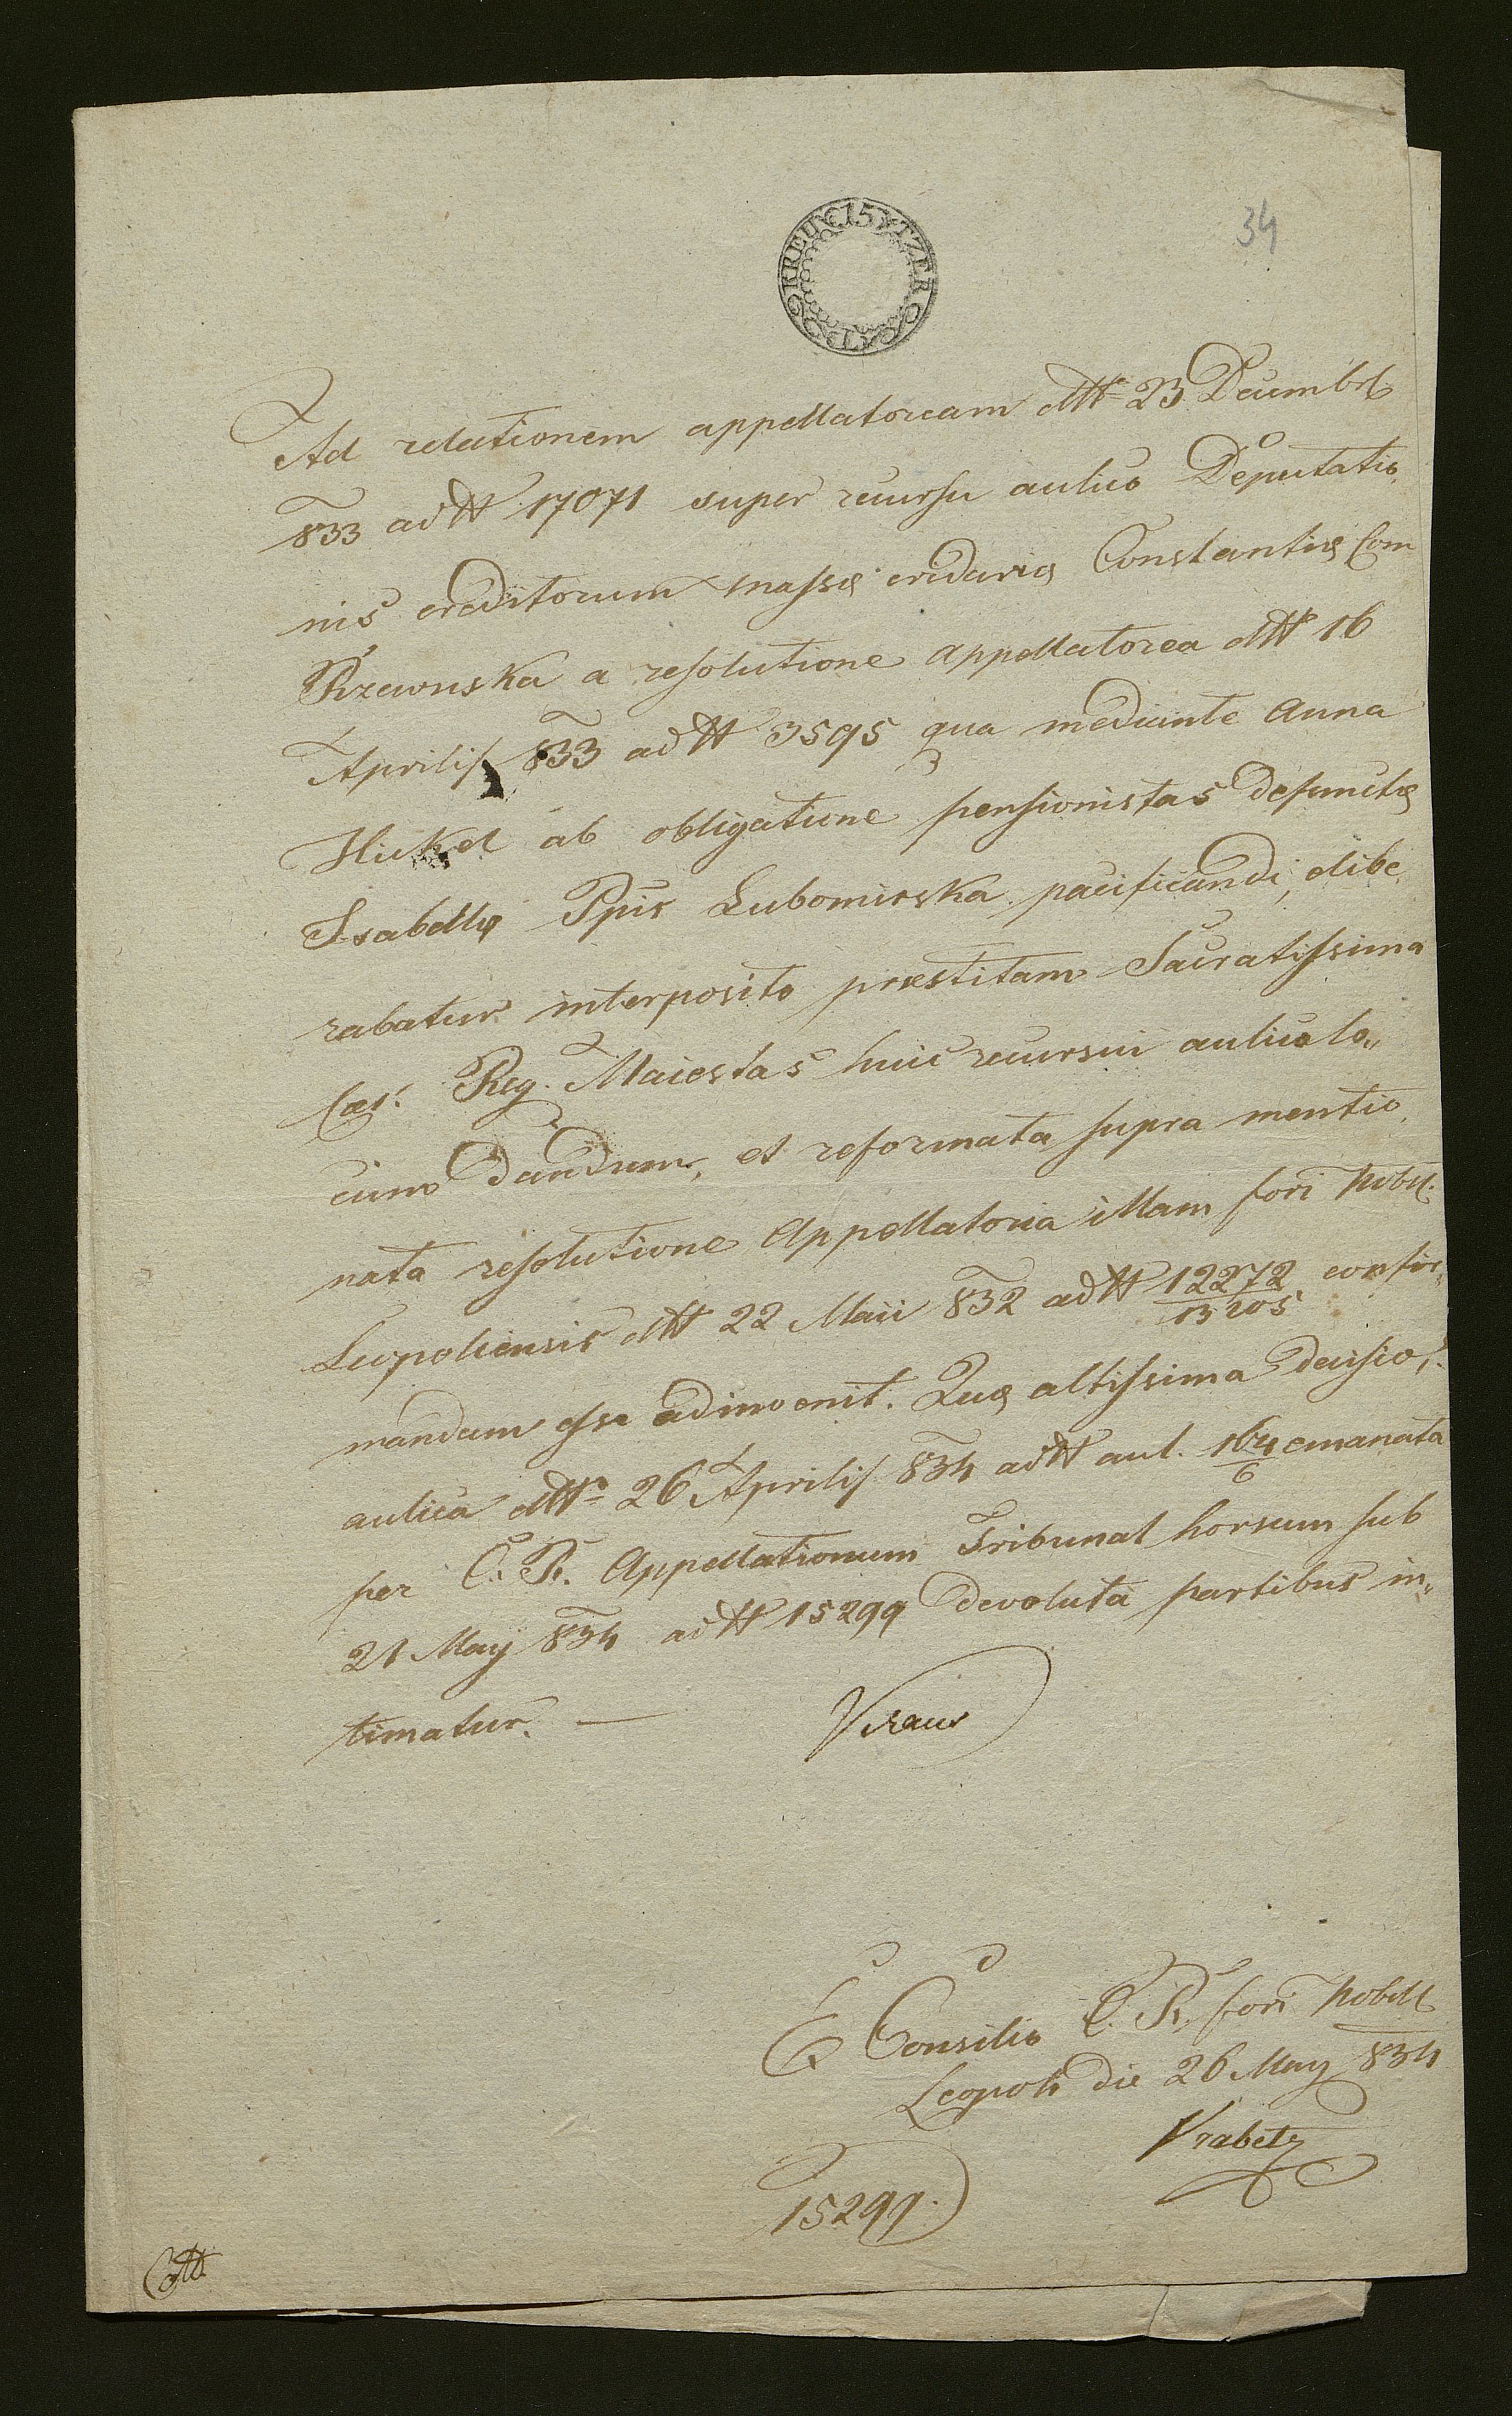 15 KREUTZER C.M.
34
Ad relationem appellatoream dtto 23 Decembris
833 ad N 17071 super recursu aulico Deputatio,
nis creditorum massæ cridariæ Constantiæ Com
Rzewuska a resolutione appellatorea dtto 16
Aprilis 833 ad N 3595 qua mediante Anna
Hickel ab obligatione pensionistas defunctæ
Isabellæ Ppis Lubomirska pacificandi, elibe,
rabatur interposito præstitam Sacratissima
Cæs. Reg. Maiestas huic recursui aulico lo„
cum dandum, et reformata supra mentio,
nata resolutione Appellatoria illam fori Nobil.
Leopoliensis dtto 22 Maii 832 ad N 12272/13205 confir„
mandam esse adinvenit. Quæ altissima decisio,
aulica dtto 26 Aprilis 834 ad N aul. 164/6 emanata
per C. R. Appellationum Tribunal horsum sub
21 May 834 ad N 15299 devoluta partibus in„
timatur. —
Ex Consilio C. R. fori Nobil
Leopoli die 26 May 834
Vrabetz
15299.